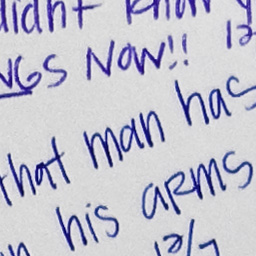 didn't know
NGS NOW!! 12
that man has
his arms
12/7